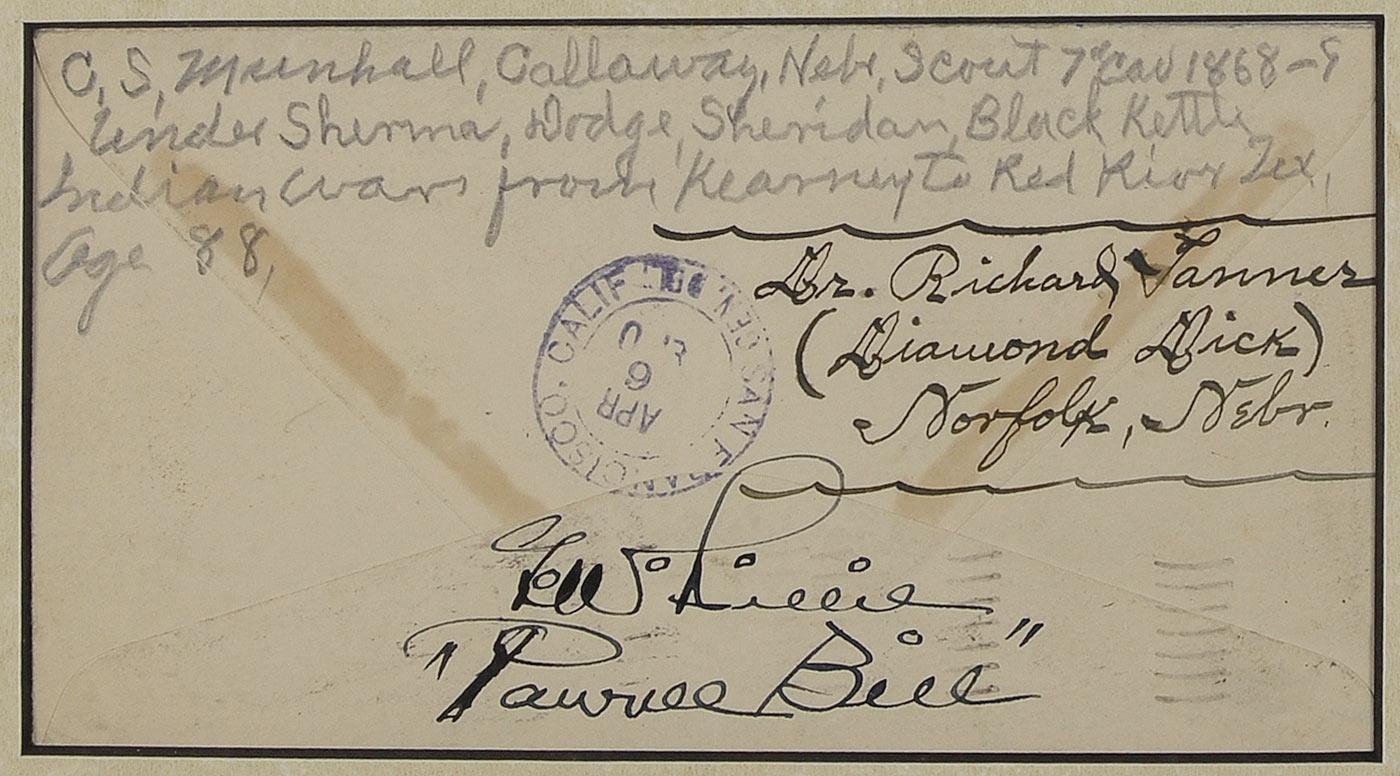 C. S. Munhall, Callaway, Nebr, Scout 7th Cav 1868-9
Under Sherma, Dodge, Sheridan, Black Kettle
Indian wars from Kearney to Red River Tex,
Age 88,
Dr. Richard Tanner
(Diamond Dick)
Norfolk, Nebr.
SAN FRANCISCO, CALIF
APR
6
G W Lillie
"Pawnee Bill"